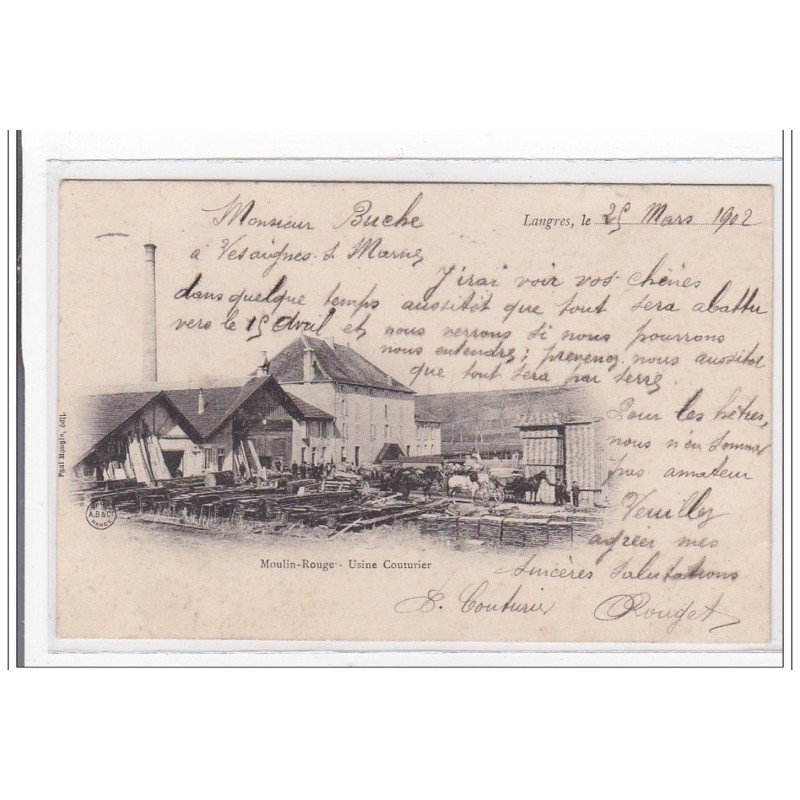 Monsieur Buche
Langres, le 25 Mars 1902
à Vesaignes s Marne
J'irai voir vos chênes
dans quelque temps aussitôt que tout sera abattu
vers le 15 Avril et nous verrons si nous pourrons
nous entendre; prevenez nous aussitot
que tout sera par terre.
Pour les hêtres,
nous n'en sommes
pas amateur
Veuillez
agréer mes
sincères salutations
Couturier Rouget
Phot Mougin, édit.
A.B.&C.
NANCY
Moulin-Rouge - Usine Couturier